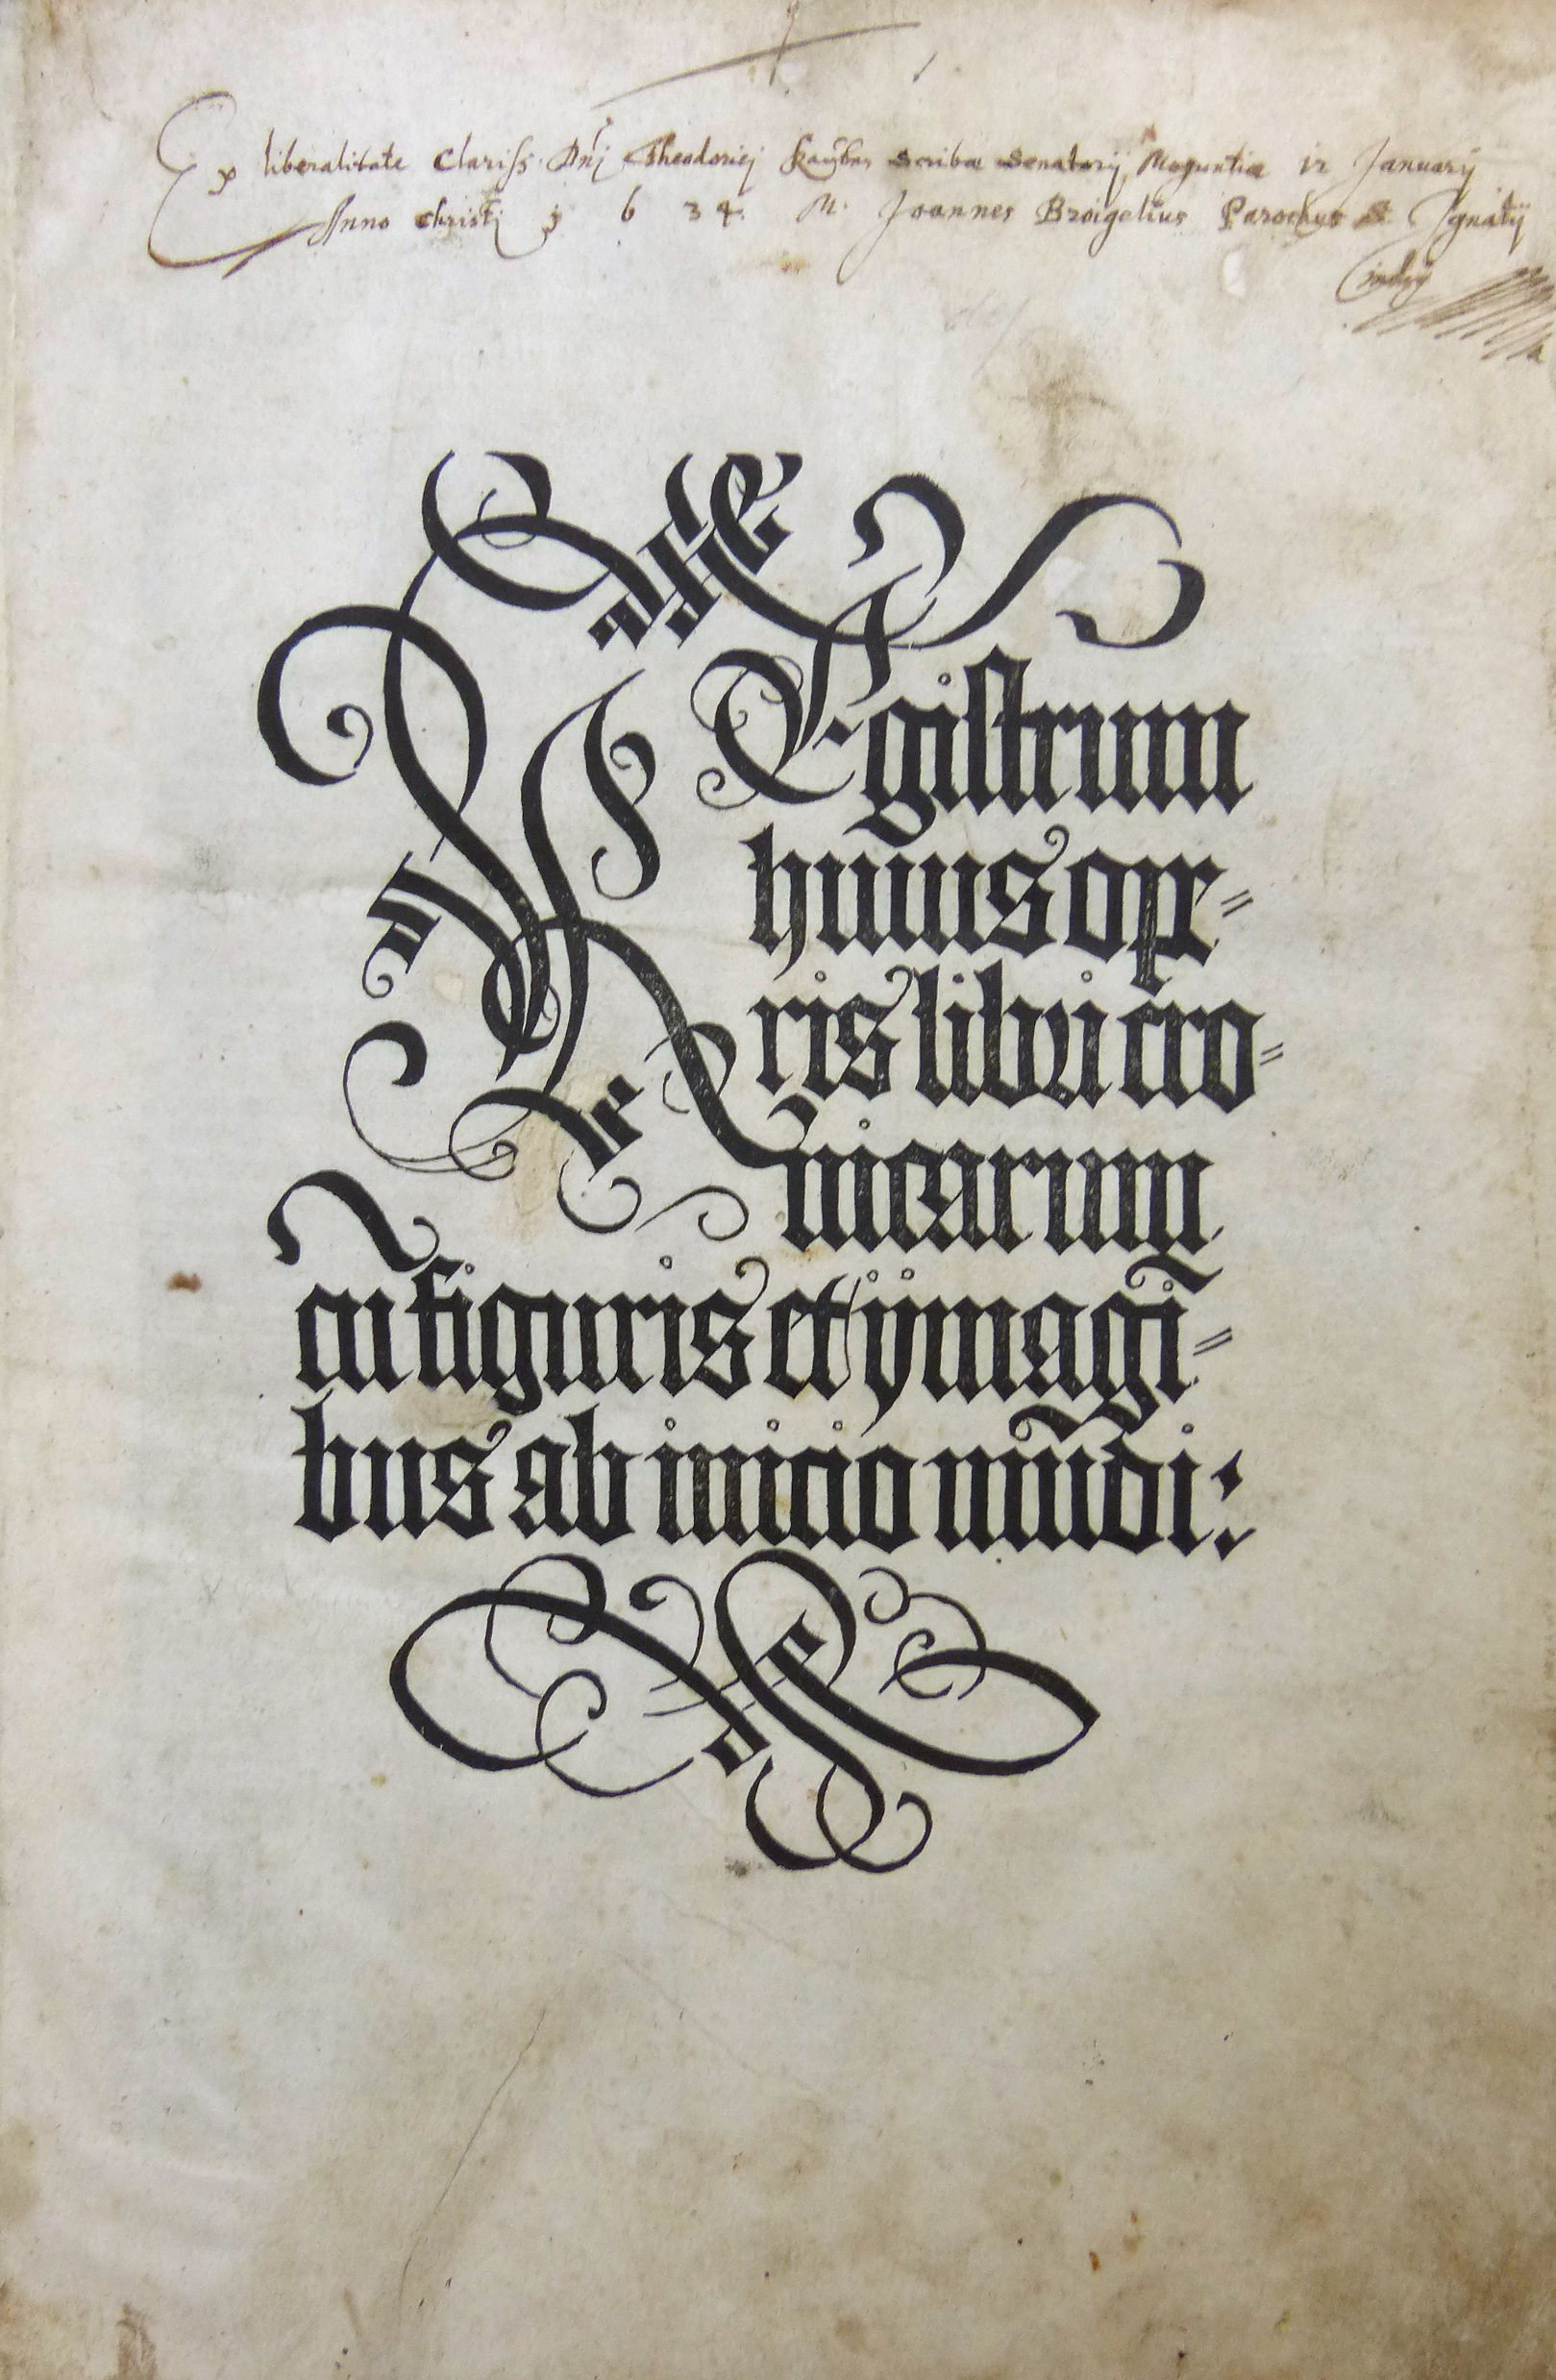 Ex liberalitate Clariss. Dnj Theodoricj scribæ Senatorij Moguntiæ 12 Januarij
Anno Christj 1634. M. Joannes Broigelius Parochus S. Ignatij
REgistrum
huius ope-
ris libri cro-
nicarum
cũ figuris et ymagĩ-
bus ab inicio mũdi: